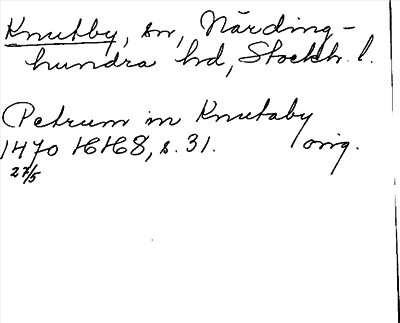 Knutby, sn, Närding-
hundra hd, Stockh. l.
Petrum in Knutaby
1470 HH8, s. 31. orig.
27/5